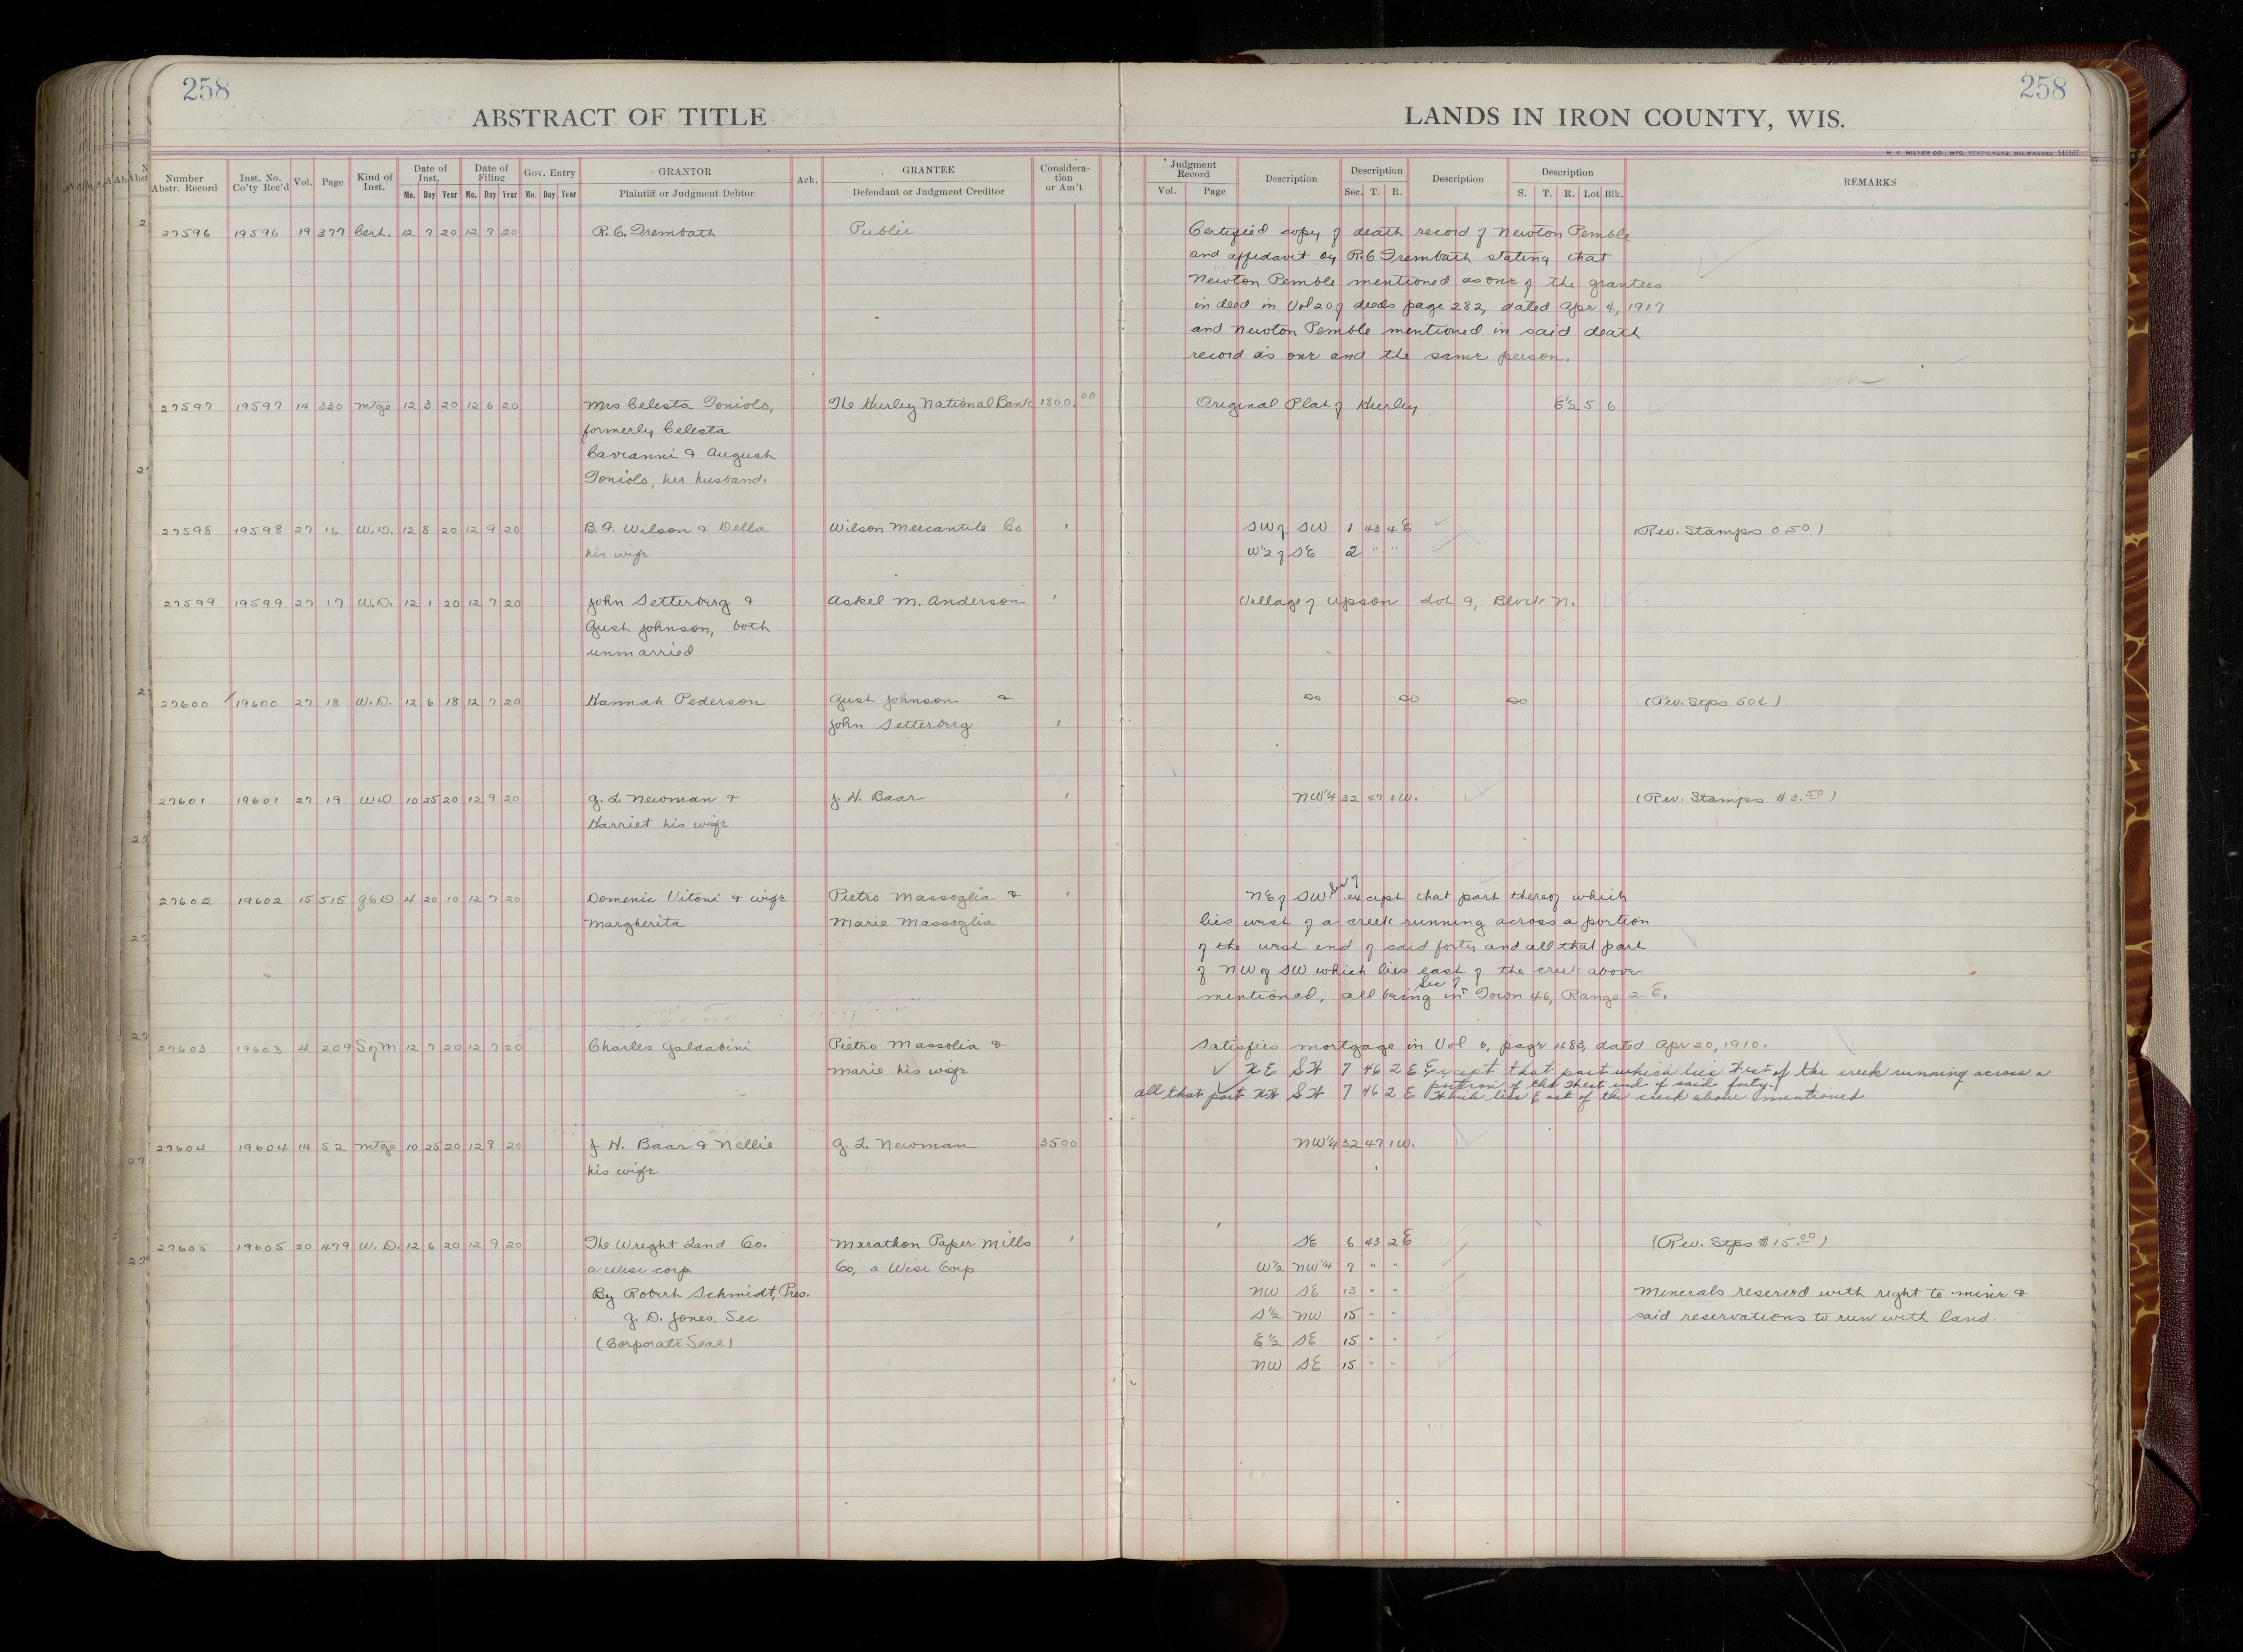 258
258
ABSTRACT OF TITLE
LANDS IN IRON COUNTY, WIS.
H. C. MILLER CO., MFG. STATIONERS, MILWAUKEE 141107
Number Abstr. Record
Inst. No. Co'ty Rec'd
Vol.
Page
Kind of Inst.
Date of Inst.
Mo. Day Year
Date of Filing
Mo. Day Year
Gov. Entry
Mo. Day Year
GRANTOR
Plaintiff or Judgment Debtor
Ack.
GRANTEE
Defendant or Judgment Creditor
Considera-tion or Am't
Judgment Record
Vol. Page
Description
Description
Sec. T. R.
Description
Description
S. T. R. Lot Blk.
REMARKS
27596 19596 19 377 Cert. 12 7 20 12 7 20 R. C. Trembath Public Certified copy of death record of Newton Pemble
and affidavit by R. C Trembath stating that
Newton Pemble mentioned as one of the grantees
in deed in Vol 20 of deeds page 282, dated Apr 4, 1917
and Newton Pemble mentioned in said death
record as one and the same person.
27597 19597 14 330 Mtge 12 3 20 12 6 20 Mrs Celesta Toniolo, The Hurley National Bank 1800.00 Original Plat of Hurley E½ 5 6
formerly Celesta
Cavianni & August
Toniolo, her husband.
27598 19598 27 16 W.D. 12 8 20 12 9 20 B. F. Wilson & Della Wilson Mercantile Co 1 SW of SW 1 43 4 E (Rev. Stamps 0.50)
his wife W½ of SE 2 " "
27599 19599 27 17 W.D. 12 1 20 12 7 20 John Setterberg & Askel M. Anderson 1 Village of Upson Lot 9, Block N.
Gust Johnson, both
unmarried
27600 19600 27 18 W.D. 12 6 18 12 7 20 Hannah Pederson Gust Johnson & Do Do Do (Rev. Stps 50¢)
John Setterberg 1
27601 19601 27 19 W.D 10 25 20 12 9 20 G. L. Newman & J. H. Baar 1 NW¼ 32 47 1 W. (Rev. Stamps $3.50)
Harriet his wife
27602 19602 15 515 QCD 4 20 10 12 7 20 Domenic Vitoni & wife Pietro Massoglia & 1 NE of SW Sec 7 except that part thereof which
Margherita Marie Massoglia lies west of a creek running across a portion
of the west end of said forty and all that part
of NW of SW which lies east of the creek above
mentioned, all being in Sec 7 Town 46, Range 2 E.
27603 19603 4 209 S of M 12 7 20 12 7 20 Charles Galdabini Pietro Massolia & Satisfies mortgage in Vol 6, page 483, dated Apr 20, 1910.
Marie his wife NE SW 7 46 2 E Except that part which lies West of the creek running across a
portion of the West end of said forty.
all that part NW SW 7 46 2 E Which lies East of the creek above mentioned
27604 19604 14 52 Mtge 10 25 20 12 9 20 J. H. Baar & Nellie G. L. Newman 3500 NW¼ 32 47 1 W.
his wife
27605 19605 20 479 W. D. 12 6 20 12 9 20 The Wright Land Co. Marathon Paper Mills 1 SE 6 43 2 E (Rev. Stps $15.00)
a Wisc corp. Co, a Wisc Corp W½ NW¼ 7 " "
By Robert Schmidt, Pres. NW SE 13 " " Minerals reserved with right to mine &
G. D. Jones. Sec S½ NW 15 " " said reservations to run with land.
(Corporate Seal) E½ SE 15 " "
NW SE 15 " "